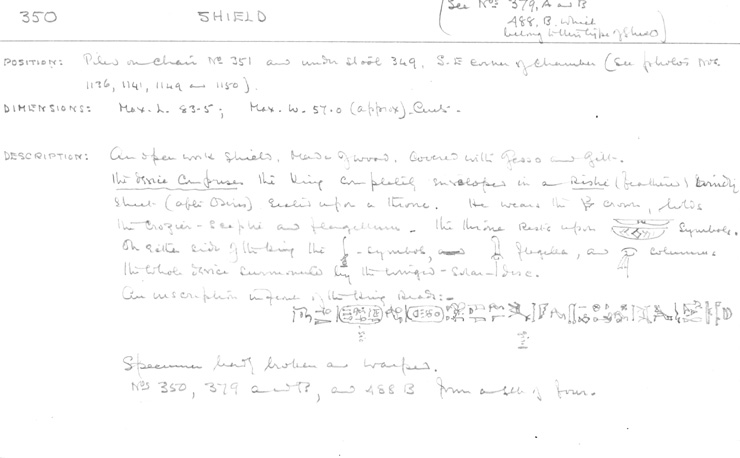 350 SHIELD
(See Nos 379, A and B
488, B. which
belong to this type of Shield)
POSITION: Piled on chair No 351 and under stool 349, S-E corner of Chamber (See photos Nos
1136, 1141, 1149 and 1150).
DIMENSIONS: Max. L. 83.5; Max. W. 57.0 (approx) Cms.
DESCRIPTION: An open work shield, Made of wood, Covered with Gesso and Gilt.
The device Comprises the King completely enveloped in a Rishi (feathered)
sheet (after Osiris) seated upon a throne. He wears the crown, holds
the Crozier-Sceptre and flagellum. The throne rests upon symbols.
On either side of the King the - symbols, and flagella, and columns
The whole device surmounted by the winged-Solar-disc.
An inscription in front of the King reads:-
Specimen badly broken and warped.
Nos 350, 379 a and B, and 488 B form a set of four.